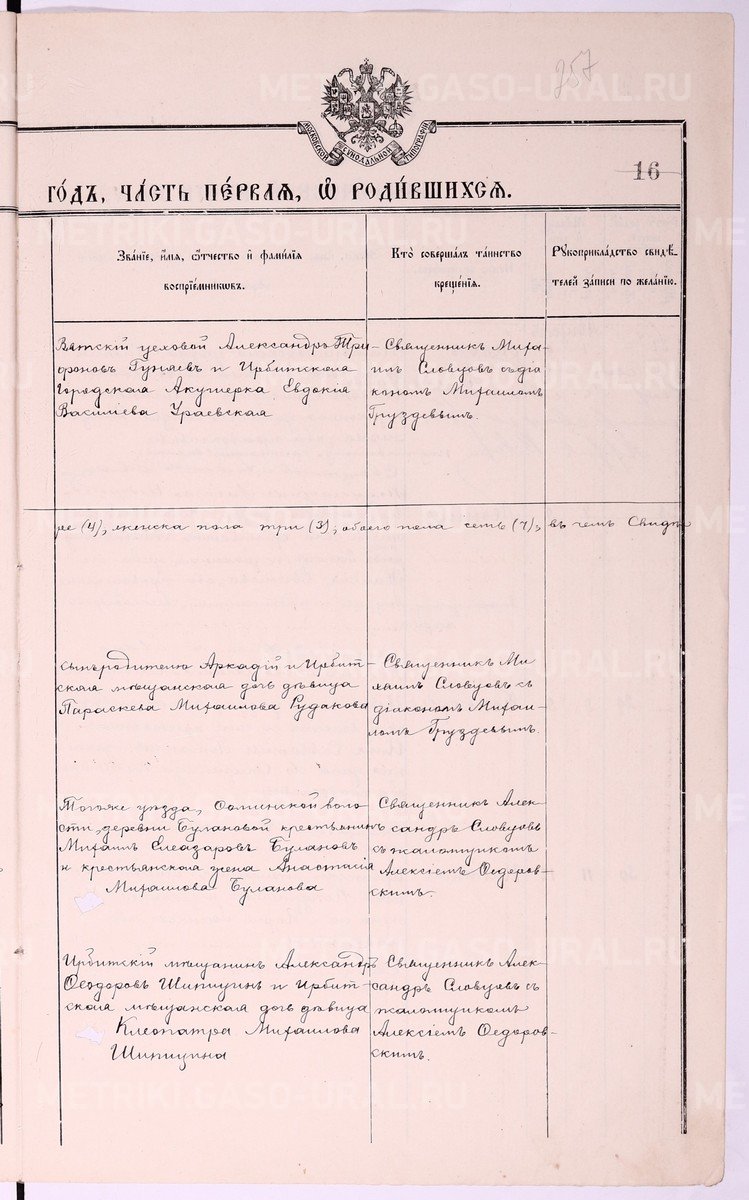 257
МОСКОВСКОЙ СѴНОДАЛЬНОЙ ТИПОГРАФІИ
16
ГО́ДЪ, ЧА́СТЬ ПЕ́РВАЯ, Ѽ РОДИ́ВШИХСЯ.
Зва́нїе, и́мѧ, ѻ҆́тчество и҆ фами́лїѧ
воспрїе́мникѡвъ.
Кто̀ соверша́лъ та́инство
креще́нїѧ.
Рꙋкоприкла́дство свидѣ́-
телей за́писи по жела́нїю.
Вятскій цеховой Александръ Три-
фоновъ Гуняевъ и Ирбитская
Городская Акушерка Евдокія
Василіева Ураевская
Священникъ Миха-
илъ Словцовъ съ діа-
кономъ Михаиломъ
Груздевымъ.
ре (4), женска пола три (3), обоего пола семь (7), въ чемъ Свидѣ
сынъ родителю Аркадій и Ирбит-
ская мѣщанская дочь дѣвица
Параскева Михаилова Рудакова
Священникъ Ми
хаилъ Словцовъ съ
діакономъ Михаи-
ломъ Груздевымъ.
Тогоже уѣзда, волo-
сти, деревни Булановой крестьянинъ
Михаилъ Елеазаровъ Булановъ
и крестьянская жена Анастасія
Михаилова Буланова
Священникъ Алек-
сандръ Словцовъ
съ псаломщикомъ
Алексіемъ Ѳедоров-
скимъ.
Ирбитскій мѣщанинъ Александръ
Ѳеодоровъ Шипицинъ и Ирбит-
ская мѣщанская дочь дѣвица
Клеопатра Михаилова
Шипицина
Священникъ Алек-
сандръ Словцовъ съ
псаломщикомъ
Алексіемъ Ѳедоров-
скимъ.
METRIKI.GASO-URAL.RU